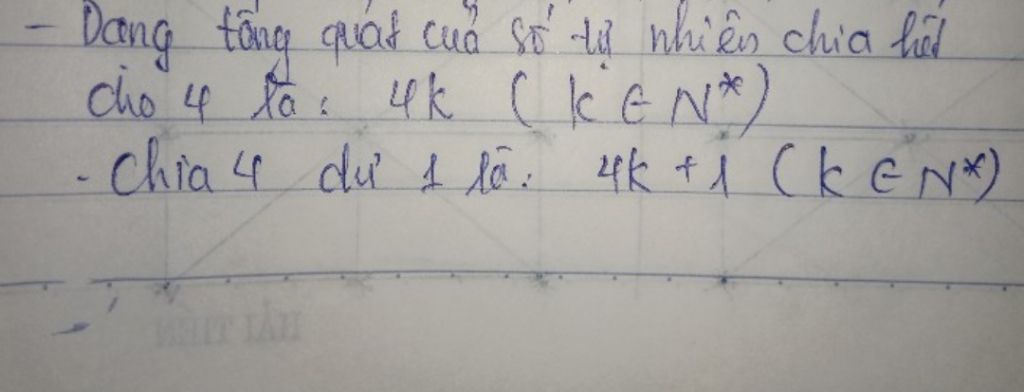 - Dạng tổng quát của số tự nhiên chia hết
cho 4 là: 4k (k ∈ N*)
- Chia 4 dư 1 là: 4k + 1 (k ∈ N*)
HẢI TIẾN